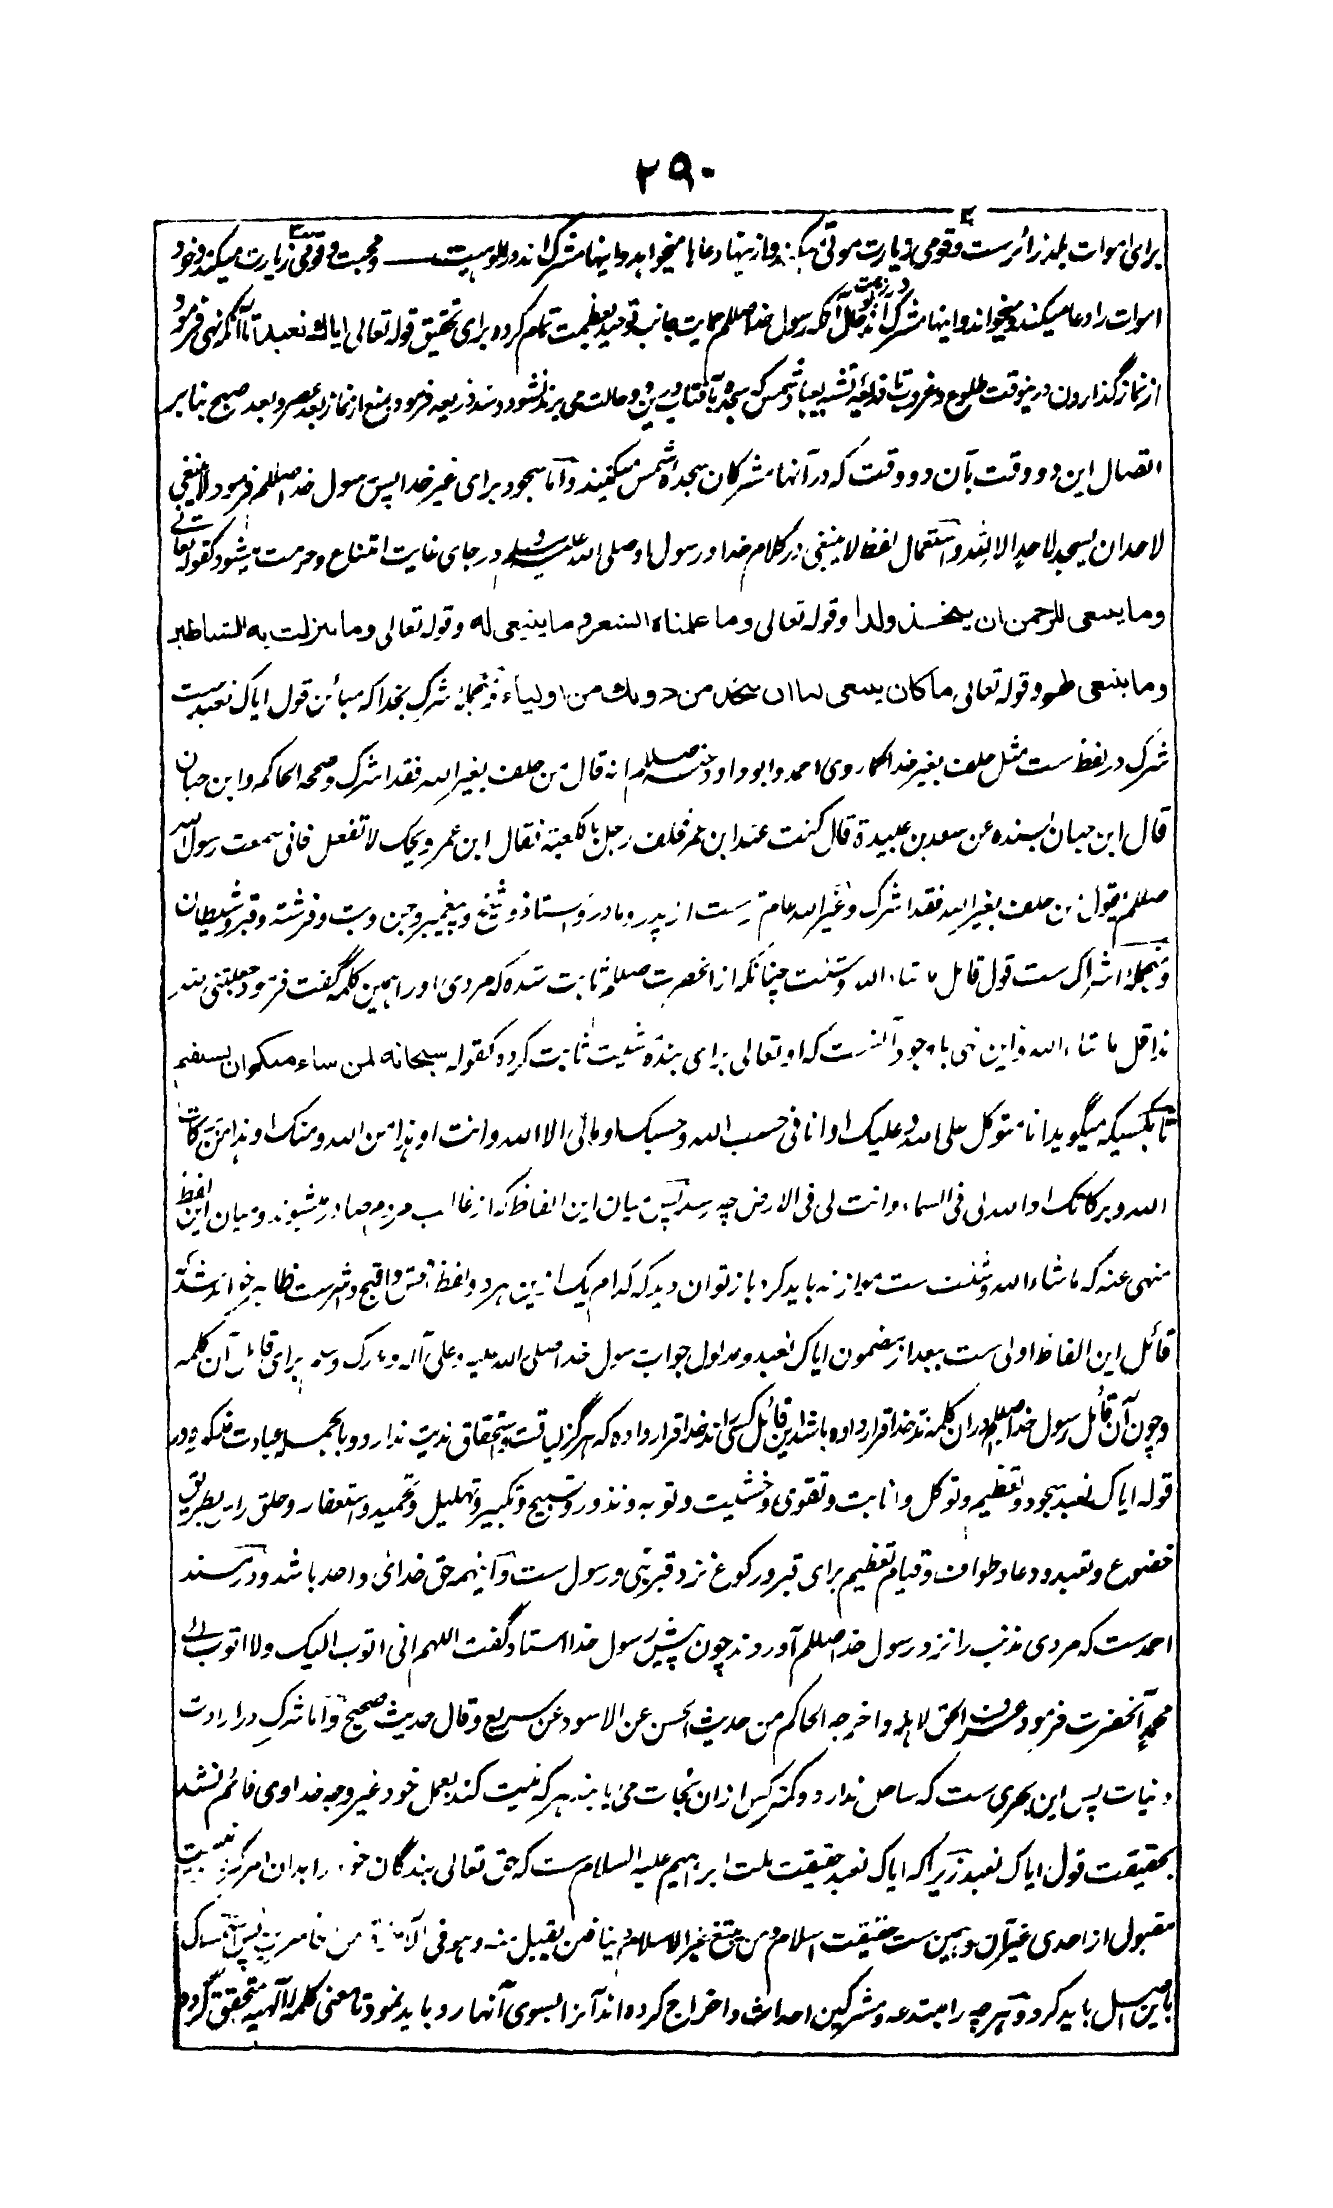 ۲۹۰
برای اموات بلد زائرست و قومی زیارت موتی میکنند و ازینها دعاها میخواهند و اینها مشرک اند در الوهیت و محبت و قومی زیارت میکنند و خود
اموات را دعا میکنند و میخوانند و اینها مشرک اند در ربوبیت حال آنکه رسول خدا صللم حمایت جانب توحید بعظیمت تمام کرده برای تحقیق قوله تعالی ایاك نعبد تا آنکه نهی فرموده
از نماز گذاردن درینوقت طلوع و غروب تا ذریعهٔ تشبه بعباد شمس که سجده بآفتاب درین دو حالت می برند نشود و سد ذریعه فرمود و منع از نماز بعد عصر و بعد صبح بنا بر
اتصال این دو وقت بآن دو وقت که در آنها مشرکان سجدهٔ شمس میکنند و اما سجود برای غیر خدا پس رسول خدا صللم فرمود لا ینبغی
لاحد ان یسجد لاحد الا لله و استعمال لفظ لا ینبغی در کلام خدا و رسول او صلی الله علیه وسلم در جای غایت امتناع و حرمت میشود کقوله تعالی
وما ینبغی للرحمن ان یتخذ ولدا و قوله تعالی وما علمناه الشعر وما ینبغی له و قوله تعالی وما تنزلت به الشیاطین
وما ینبغی لهم و قوله تعالی ما کان ینبغی لنا ان نتخذ من دونك من اولیاء و منجملهٔ شرک بخدا که مبائن قول ایاک نعبدست
شرک در لفظ ست مثل حلف بغیر خدا کما روی احمد و ابو داود عنه صللم انه قال من حلف بغیر الله فقد اشرک و صححه الحاکم و ابن حبان
قال ابن حبان بسنده عن سعد بن عبیدة قال کنت عند ابن عمر فحلف رجل بالکعبة فقال ابن عمر ویحک لا تفعل فانی سمعت رسول الله
صللم یقول من حلف بغیر الله فقد اشرک و غیر الله عام ترست از پدر و مادر و استاذ و شیخ و پیغمبر و جن و بت و فرشته و قبر و شیطان
و منجملهٔ اشراک ست قول قائل ما شاء الله و شئت چنانکه از آنحضرت صللم ثابت شده که مردی او را همین کلمه گفت فرمود جعلتنی لله
ندا قل ما شاء الله و این نهی باوجود آنست که او تعالی برای بنده مشیت ثابت کرده کقوله سبحانه لمن شاء منکم ان یستقیم
تا بکسیکه میگوید انا متوکل علی الله و علیک او انا فی حسب الله و حسبک او مالی الا الله و انت او هذا من الله و منک او هذا من برکات
الله و برکاتک او الله لی فی السماء و انت لی فی الارض چه رسد پس میان این الفاظ که از غالب مردم صادر میشوند و میان این لفظ
منهی عنه که ما شاء الله و شئت ست موازنه باید کرد باز توان دید که کدام یک ازین هر دو لفظ افحش و اقبح و بدترست ظاهر خواهد شد که
قائل این الفاظ اولی ست ببعد از مضمون ایاک نعبد و مدلول جواب رسول خدا صلی الله علیه و علی آله و بارک وسلم برای قائل آن کلمه
و چون آن قائل رسول خدا صللم را دران کلمه ند خدا قرار داده باشد این قائل کسی را ند خدا قرار داده که هرگز لیاقت و استحقاق ندیت ندارد و بالجمله عبادت مذکوره در
قوله ایاک نعبد سجود و تعظیم و توکل و انابت و تقوی و خشیت و توبه و نذور و تسبیح و تکبیر و تهلیل و تحمید و استغفار و حلق راس بطریق
خضوع و تعبد و دعا و طواف و قیام تعظیم برای قبر و رکوع نزد قبر نبی و رسول ست و اینهمه حق خدائ واحد باشد و در مسند
احمدست که مردی مذنب را نزد رسول خدا صللم آوردند چون پیش رسول خدا استاد گفت اللهم انی اتوب الیک ولا اتوب الی
محمد آنحضرت فرمود عرف الحق لاهله و اخرجه الحاکم من حدیث الحسن عن الاسود عن سریع و قال حدیث صحیح و اما شرک در ارادت
و نیات پس این بحری ست که ساحل ندارد و کمتر کس ازان نجات می یابند هر که نیت کند بعمل خود غیر وجه خدا وی قائم نشد
بحقیقت قول ایاک نعبد زیرا که ایاک نعبد حقیقت ملت ابراهیم علیه السلام ست که حق تعالی بندگان خود را بدان امر کرده نیست
مقبول از احدی غیر آن و همین ست حقیقت اسلام و من یبتغ غیر الاسلام دینا فلن یقبل منه وهو فی الآخرة من الخاسرین پس تمسک
باین اصل باید کرد و هر چه را مبتدعه و مشرکین احداث و اخراج کرده اند آنرا بسوی آنها رد باید نمود تا معنی کلمهٔ الهیه متحقق گردد